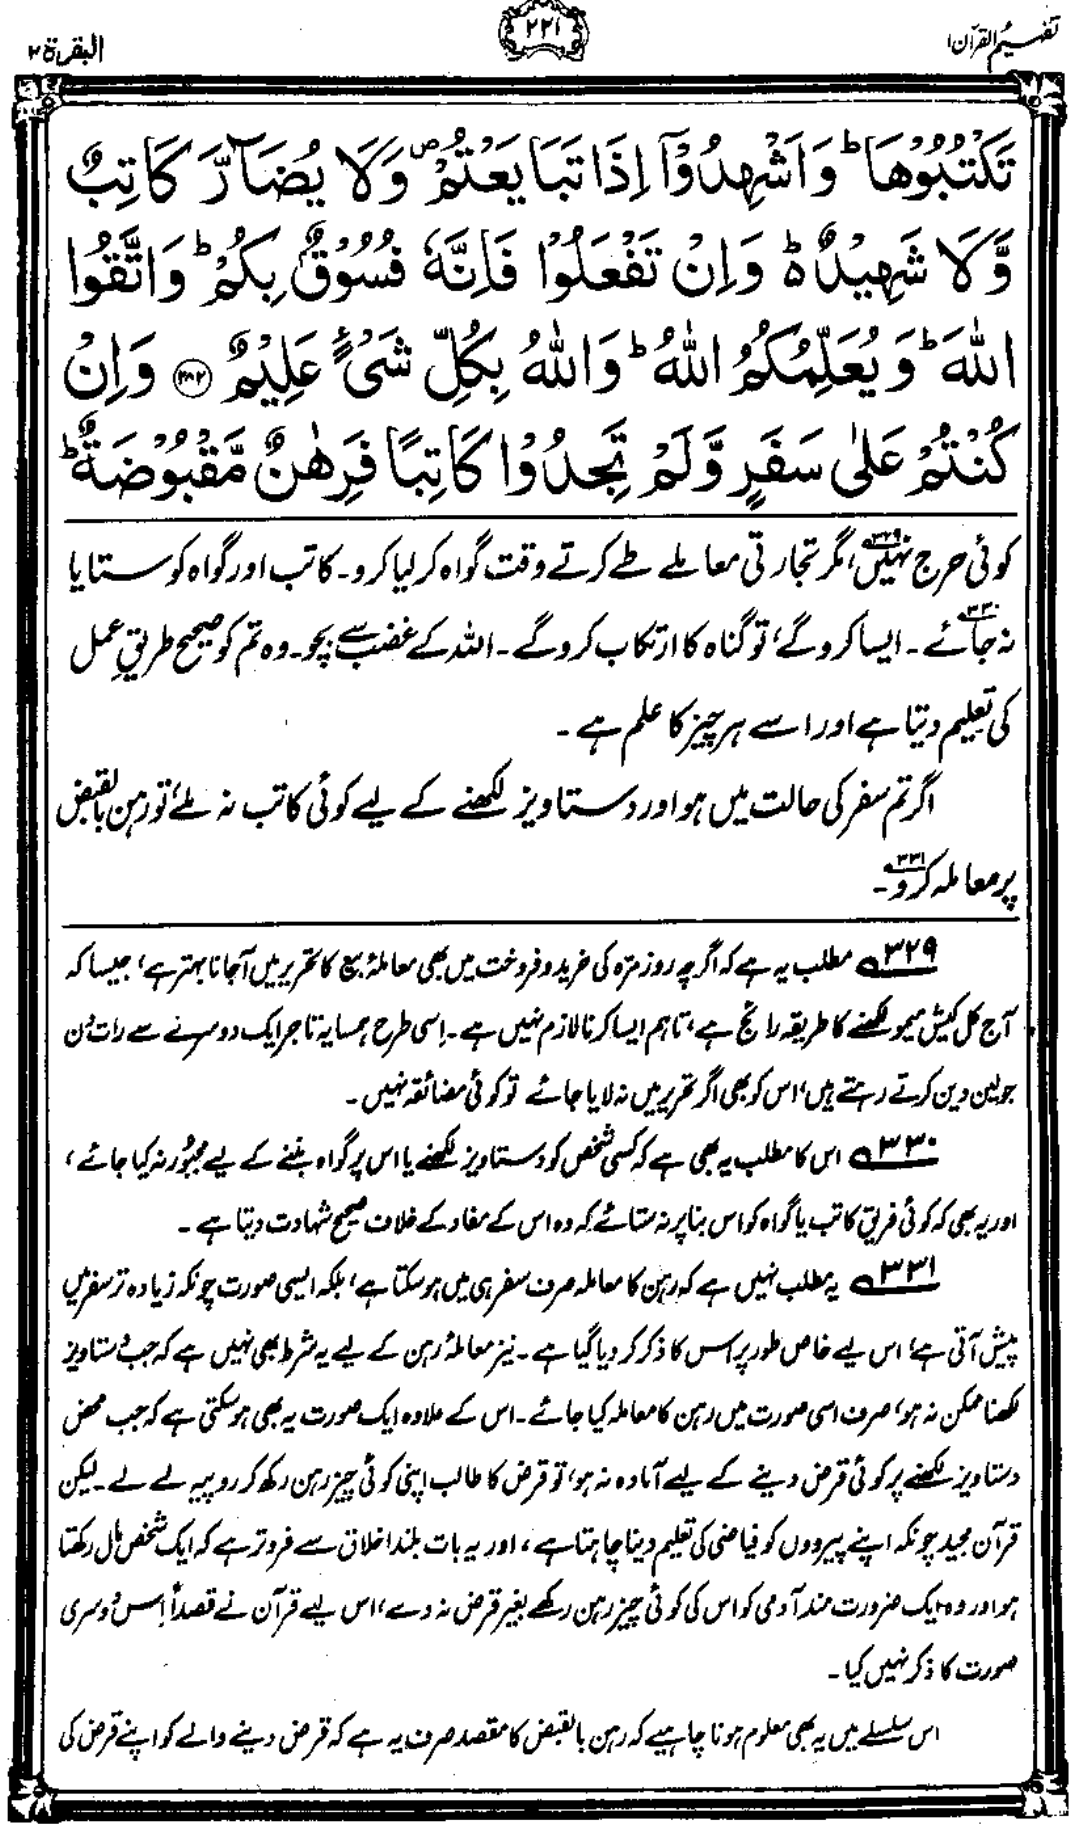 تفہیم القرآن ۱
۲۲۱
البقرة ۲
تَكْتُبُوْهَا ؕ وَاَشْهِدُوْۤا اِذَا تَبَايَعْتُمْ ۪ وَلَا يُضَآرَّ كَاتِبٌ
وَّلَا شَهِيْدٌ ؕ۬ وَاِنْ تَفْعَلُوْا فَاِنَّهٗ فُسُوْقٌۢ بِكُمْ ؕ وَاتَّقُوا
اللّٰهَ ؕ وَيُعَلِّمُكُمُ اللّٰهُ ؕ وَاللّٰهُ بِكُلِّ شَیْءٍ عَلِيْمٌ ﴿۲۸۲﴾ وَاِنْ
كُنْتُمْ عَلٰى سَفَرٍ وَّلَمْ تَجِدُوْا كَاتِبًا فَرِهٰنٌ مَّقْبُوْضَةٌ ؕ
کوئی حرج نہیں۳۲۹، مگر تجارتی معاملے طے کرتے وقت گواہ کر لیا کرو۔ کاتب اور گواہ کو ستایا
نہ جائے۳۳۰۔ ایسا کرو گے، تو گناہ کا ارتکاب کرو گے۔ اللہ کے غضب سے بچو۔ وہ تم کو صحیح طریقِ عمل
کی تعلیم دیتا ہے اور اسے ہر چیز کا علم ہے۔
اگر تم سفر کی حالت میں ہو اور دستاویز لکھنے کے لیے کوئی کاتب نہ ملے، تو رہن بالقبض
پر معاملہ کرو۳۳۱۔
۳۲۹ مطلب یہ ہے کہ اگرچہ روزمرّہ کی خرید و فروخت میں بھی معاملۂ بیع کا تحریر میں آجانا بہتر ہے، جیسا کہ
آج کل کیش میمو لکھنے کا طریقہ رائج ہے، تاہم ایسا کرنا لازم نہیں ہے۔ اِسی طرح ہمسایہ تاجر ایک دوسرے سے رات دن
جو لین دین کرتے رہتے ہیں، اس کو بھی اگر تحریر میں نہ لایا جائے تو کوئی مضائقہ نہیں۔
۳۳۰ اس کا مطلب یہ بھی ہے کہ کسی شخص کو دستاویز لکھنے یا اس پر گواہ بننے کے لیے مجبُور نہ کیا جائے،
اور یہ بھی کہ کوئی فریق کاتب یا گواہ کو اس بنا پر نہ ستائے کہ وہ اس کے مفاد کے خلاف صحیح شہادت دیتا ہے۔
۳۳۱ یہ مطلب نہیں ہے کہ رہن کا معاملہ صرف سفر ہی میں ہو سکتا ہے، بلکہ ایسی صورت چونکہ زیادہ تر سفر میں
پیش آتی ہے، اس لیے خاص طور پر اس کا ذکر کر دیا گیا ہے۔ نیز معاملۂ رہن کے لیے یہ شرط بھی نہیں ہے کہ جب دستاویز
لکھنا ممکن نہ ہو، صرف اسی صورت میں رہن کا معاملہ کیا جائے۔ اس کے علاوہ ایک صورت یہ بھی ہو سکتی ہے کہ جب محض
دستاویز لکھنے پر کوئی قرض دینے کے لیے آمادہ نہ ہو، تو قرض کا طالب اپنی کوئی چیز رہن رکھ کر روپیہ لے لے۔ لیکن
قرآن مجید چونکہ اپنے پیرووں کو فیاضی کی تعلیم دینا چاہتا ہے، اور یہ بات بلند اخلاق سے فروتر ہے کہ ایک شخص مال رکھتا
ہو اور وہ ایک ضرورت مند آدمی کو اس کی کوئی چیز رہن رکھے بغیر قرض نہ دے، اس لیے قرآن نے قصداً اِس دُوسری
صورت کا ذکر نہیں کیا۔
اس سلسلے میں یہ بھی معلوم ہونا چاہیے کہ رہن بالقبض کا مقصد صرف یہ ہے کہ قرض دینے والے کو اپنے قرض کی